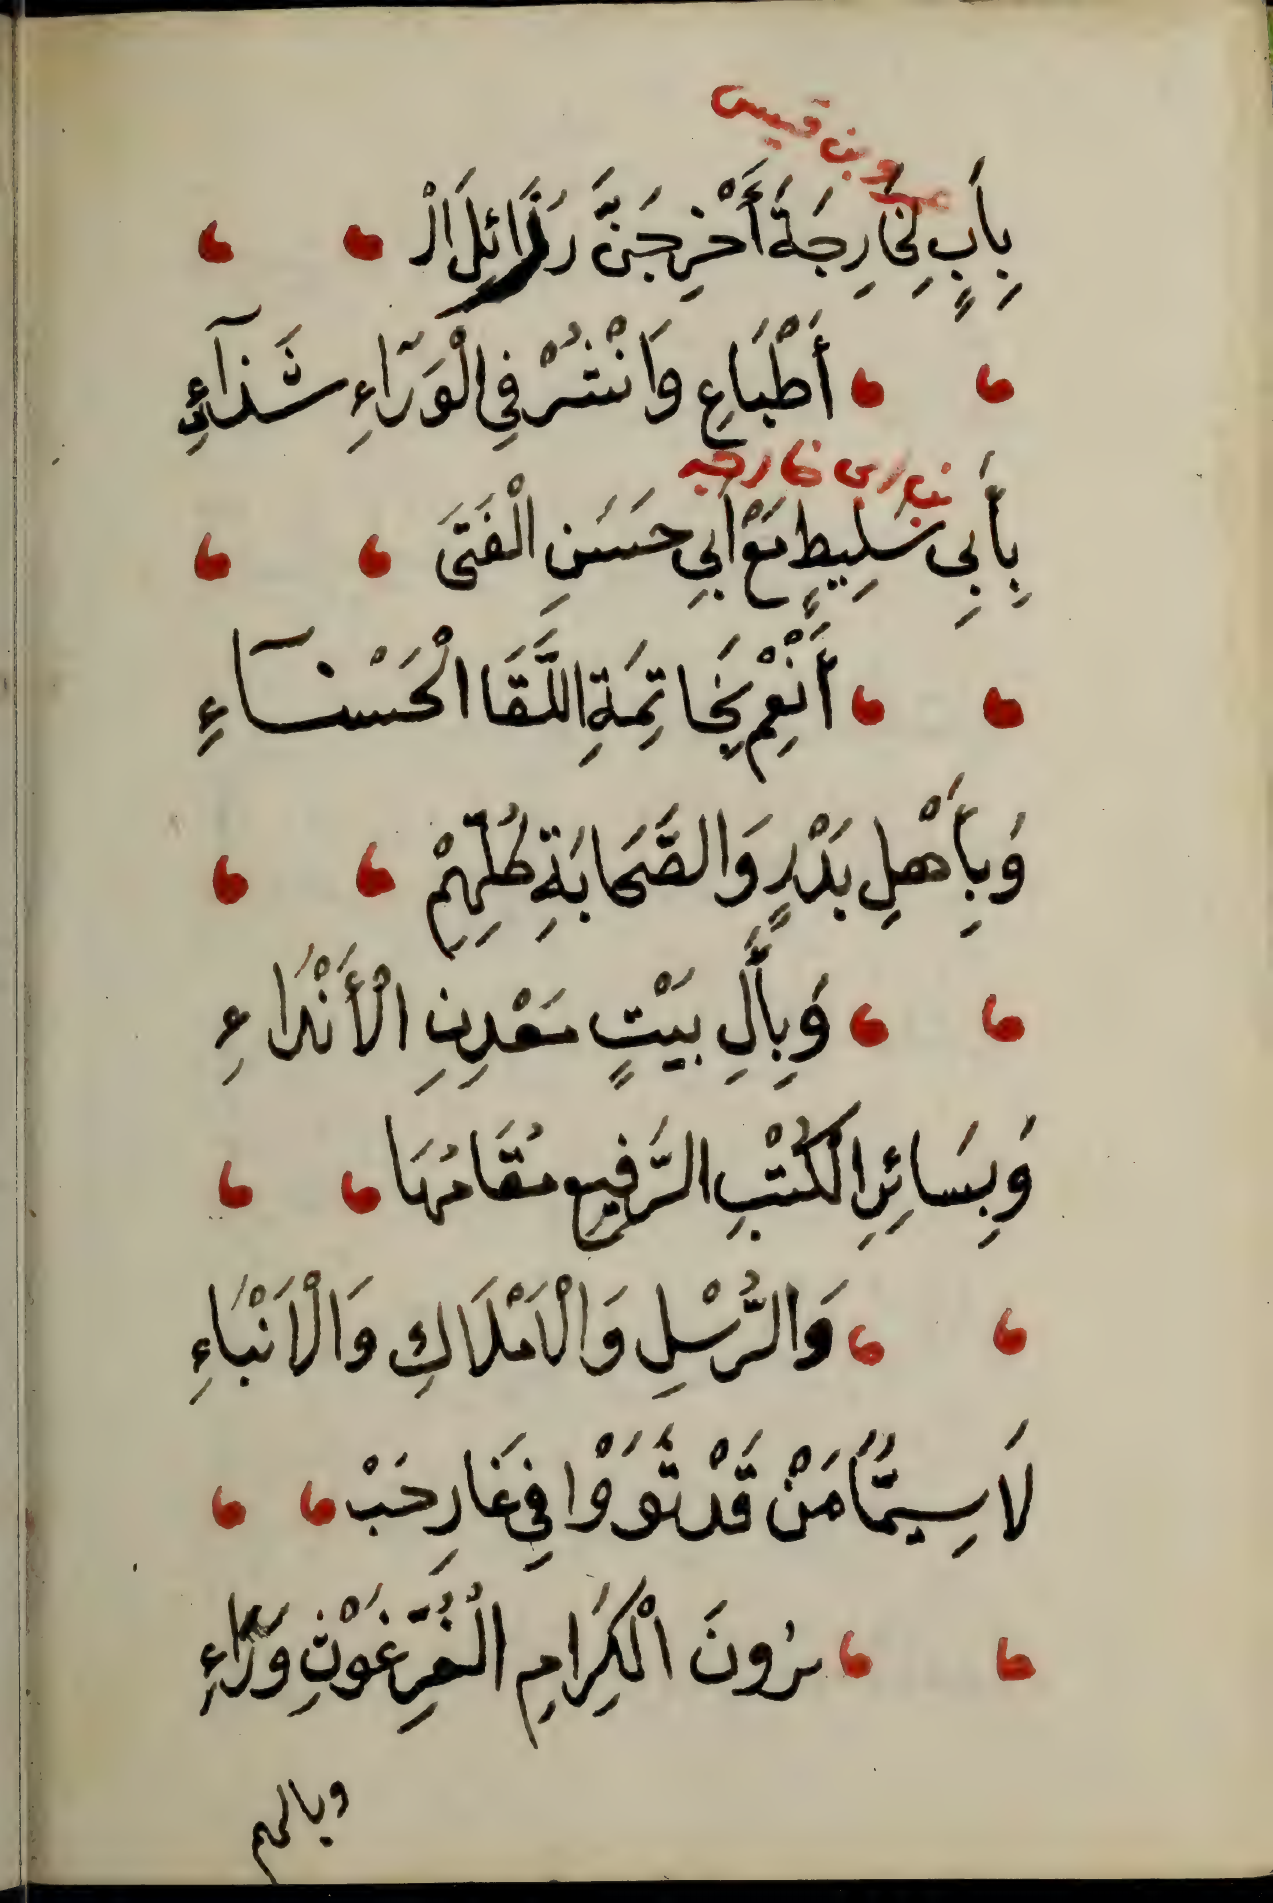 عمرو بن قيس
بِأَبٍ لِخَارِجَةَ أَخْرِجَنَّ رَذَائِلَ الْ
أَطْبَاعِ وَانْشُرْ فِي الْوَرَاءِ شَذَآئِي
خارجه
بِأَبِي سَلِيطٍ مَعْ أَبِي حَسَنِ الْفَتَى
أَنْعِمْ بِخَاتِمَةِ اللِّقَا الْحَسْنَآءِ
وَبِأَهْلِ بَدْرٍ وَالصَّحَابَةِ كُلِّهِمْ
وَبِأَلِ بَيْتٍ مَعْدِنِ الْأَنْدَاءِ
وَبِسَائِرِ الْكُتْبِ الرَّفِيعِ مَقَامُهَا
وَالرُّسْلِ وَالْأَمْلَاكِ وَالْأَنْبَاءِ
لَا سِيَّمَا مَنْ قَدْ ثَوَوْا فِي غَارِ حَبْ
رُونَ الْكِرَامِ الْغُرِّ غَوْثِ وَرَاءِ
وبالهم